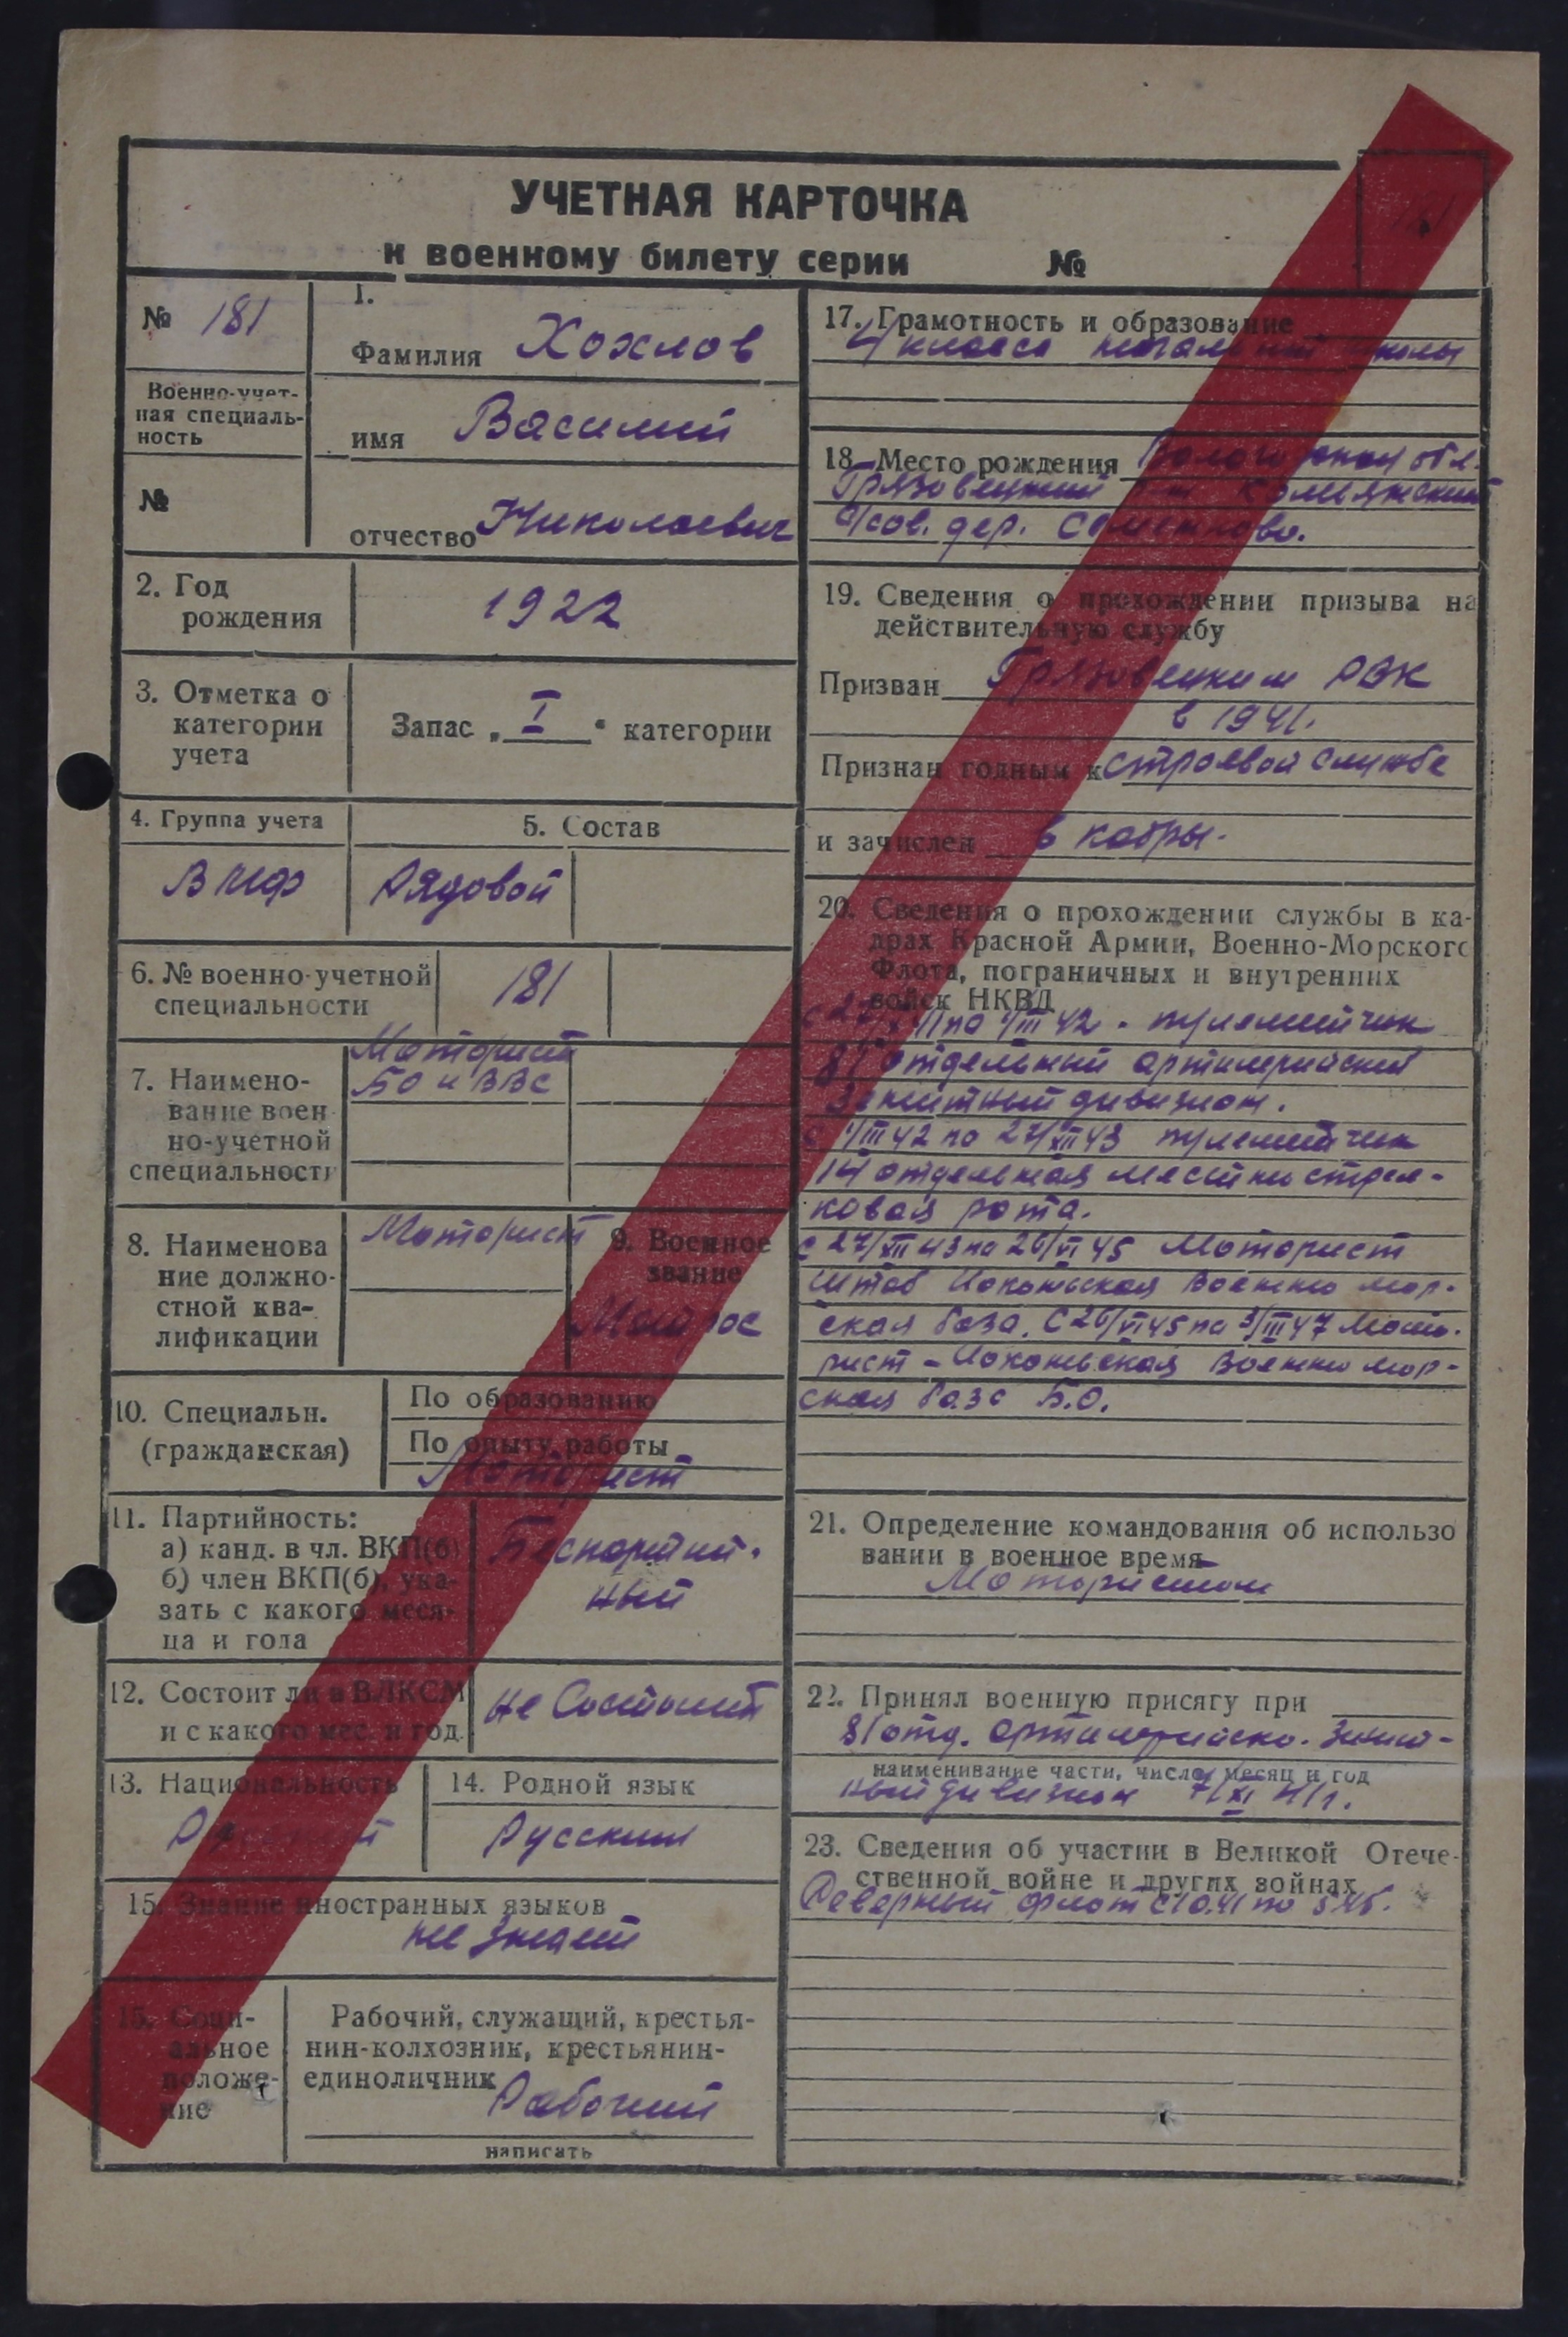 УЧЕТНАЯ КАРТОЧКА
к военному билету серии №
181
№ 181
Военно-учет-
ная специаль-
ность
№
1.
Фамилия Хохлов
имя Василий
отчество Николаевич
2. Год
рождения
1922
3. Отметка о
категории
учета
Запас „ I “ категории
4. Группа учета
ВМФ
5. Состав
Рядовой
6. № военно-учетной
специальности
181
7. Наимено-
вание воен
но-учетной
специальности
Моторист
БО и ВВС
8. Наименова
ние должно-
стной ква-
лификации
Моторист
9. Военное
звание
Матрос
10. Специальн.
(гражданская)
По образованию
По опыту работы
Моторист
11. Партийность:
а) канд. в чл. ВКП(б)
б) член ВКП(б), ука-
зать с какого меся-
ца и года
Беспартий-
ный
12. Состоит ли в ВЛКСМ
и с какого мес. и год.
не Состоит
13. Национальность
Русский
14. Родной язык
Русский
15. Знание иностранных языков
не знает
15. Соци-
альное
положе-
ние
Рабочий, служащий, крестья-
нин-колхозник, крестьянин-
единоличник
Рабочий
написать
17. Грамотность и образование
4 класса школы
18. Место рождения Вологодская обл.
Грязовецкий р-н
с/сов. дер.
19. Сведения о прохождении призыва на
действительную службу
Призван Грязовецким РВК
в 1941.
Признан годным к строевой службе
и зачислен в кадры.
20. Сведения о прохождении службы в ка-
драх Красной Армии, Военно-Морского
Флота, пограничных и внутренних
войск НКВД
41 по 4/III 42 - пулеметчик
81 отдельный артилерийский
Зенитный дивизион.
с 4/III 42 по 27/XII 43 пулеметчик
14 отдельная местно стрел-
ковая рота.
с 27/XII 43 по 26/VI 45 Моторист
Штаб Иоканьская Военно мор-
ская база. С 26/VI 45 по 3/III 47 Мото-
рист - Иоканьская Военно мор-
ская база Б.О.
21. Определение командования об использо
вании в военное время
Мотористом
22. Принял военную присягу при
81 отд. артилерийско. Зенит-
наименивание части, число, месяц и год
ный дивизион 7/XI 41 г.
23. Сведения об участии в Великой Отече-
ственной войне и других войнах
Северный флот с 10.41 по 5.45.